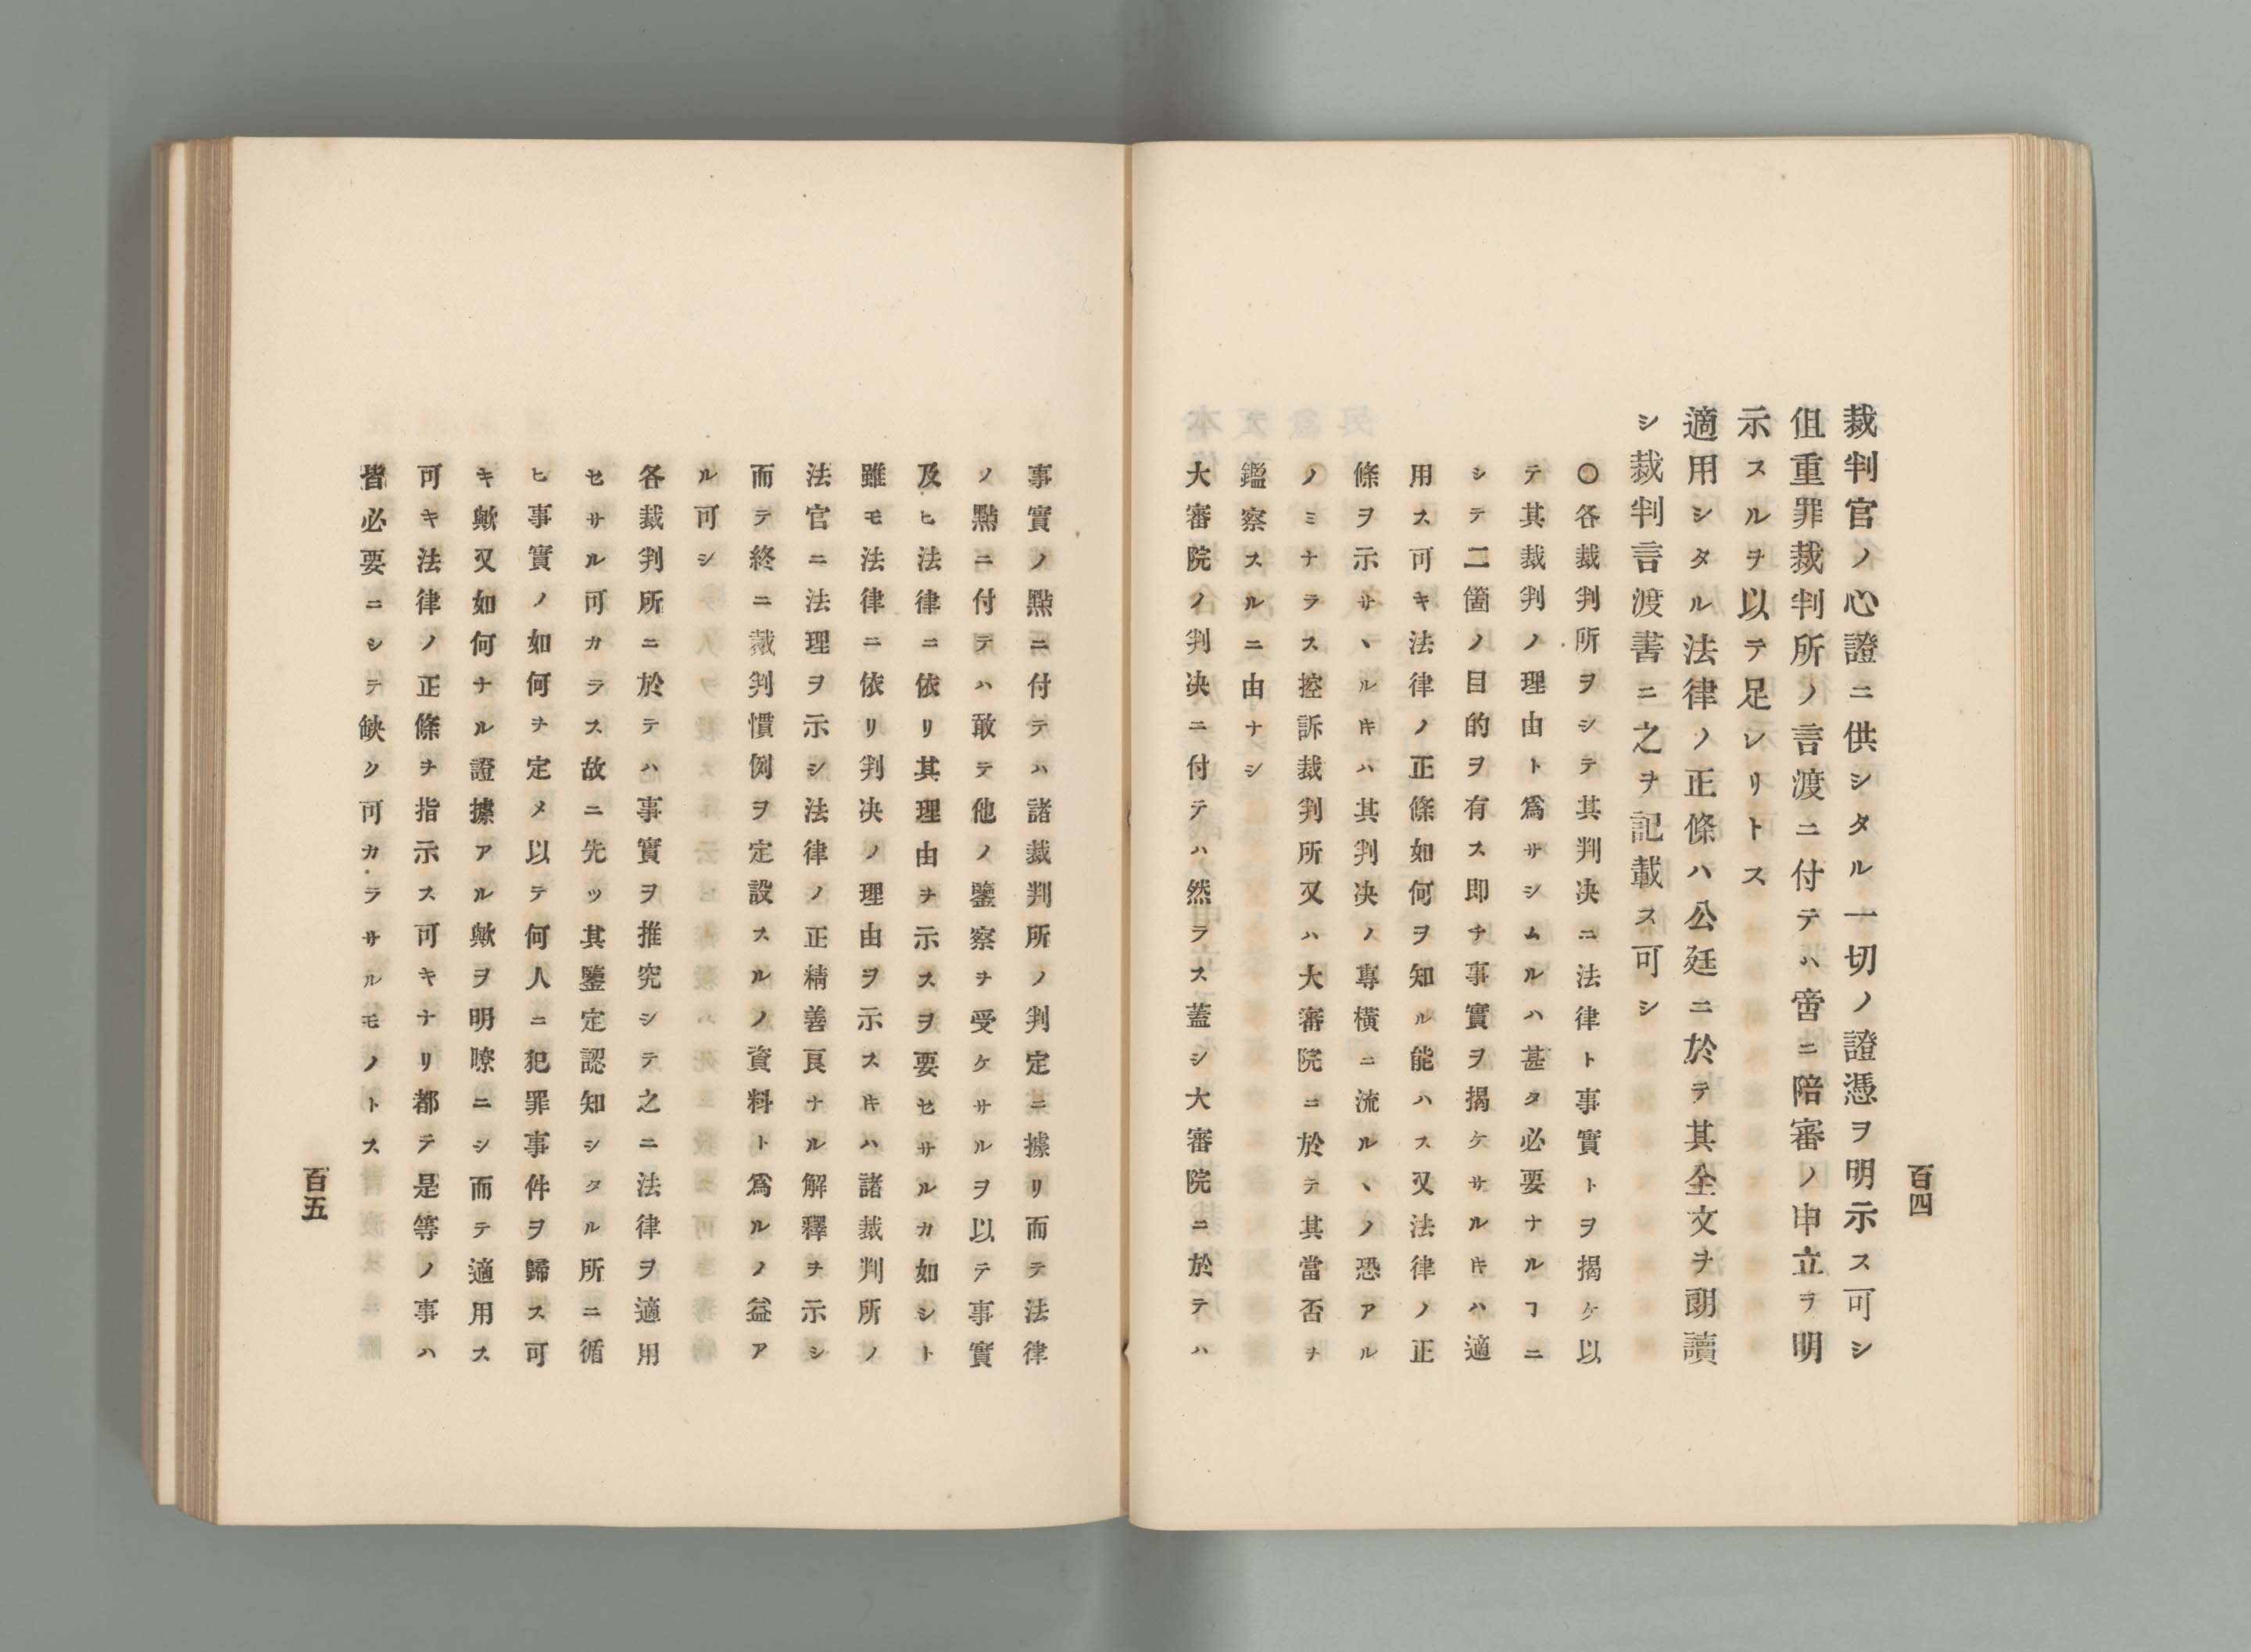 百四
裁判官ノ心證ニ供シタル一切ノ證憑ヲ明示ス可シ
伹重罪裁判所ノ言渡ニ付テハ啻ニ陪審ノ申立ヲ明
示スルヲ以テ足レリトス
適用シタル法律ノ正條ハ公廷ニ於テ其全文ヲ朗讀
シ裁判言渡書ニ之ヲ記載ス可シ
〇各裁判所ヲシテ其判决ニ法律ト事實トヲ揭ケ以
テ其裁判ノ理由ト爲サシムルハ甚タ必要ナルヿニ
シテ二箇ノ目的ヲ有ス即チ事實ヲ揭ケサルキハ適
用ス可キ法律ノ正條如何ヲ知ル能ハス又法律ノ正
條ヲ示サヽルキハ其判决ノ專橫ニ流ルヽノ恐アル
ノミナラス控訴裁判所又ハ大審院ニ於テ其當否ヲ
鑑察スルニ由ナシ
大審院ノ判决ニ付テハ然ラス蓋シ大審院ニ於テハ
事實ノ點ニ付テハ諸裁判所ノ判定ニ據リ而テ法律
ノ點ニ付テハ敢テ他ノ鑒察ヲ受ケサルヲ以テ事實
及ヒ法律ニ依リ其理由ヲ示スヲ要セサルカ如シト
雖モ法律ニ依リ判决ノ理由ヲ示スキハ諸裁判所ノ
法官ニ法理ヲ示シ法律ノ正精善良ナル解釋ヲ示シ
而テ終ニ裁判慣例ヲ定設スルノ資料ト爲ルノ益ア
ル可シ
各裁判所ニ於テハ事實ヲ推究シテ之ニ法律ヲ適用
セサル可カラス故ニ先ッ其鑒定認知シタル所ニ循
ヒ事實ノ如何ヲ定メ以テ何人ニ犯罪事件ヲ歸ス可
キ歟又如何ナル證據アル歟ヲ明瞭ニシ而テ適用ス
可キ法律ノ正條ヲ指示ス可キナリ都テ是等ノ事ハ
皆必要ニシテ缺ク可カラサルモノトス
百五